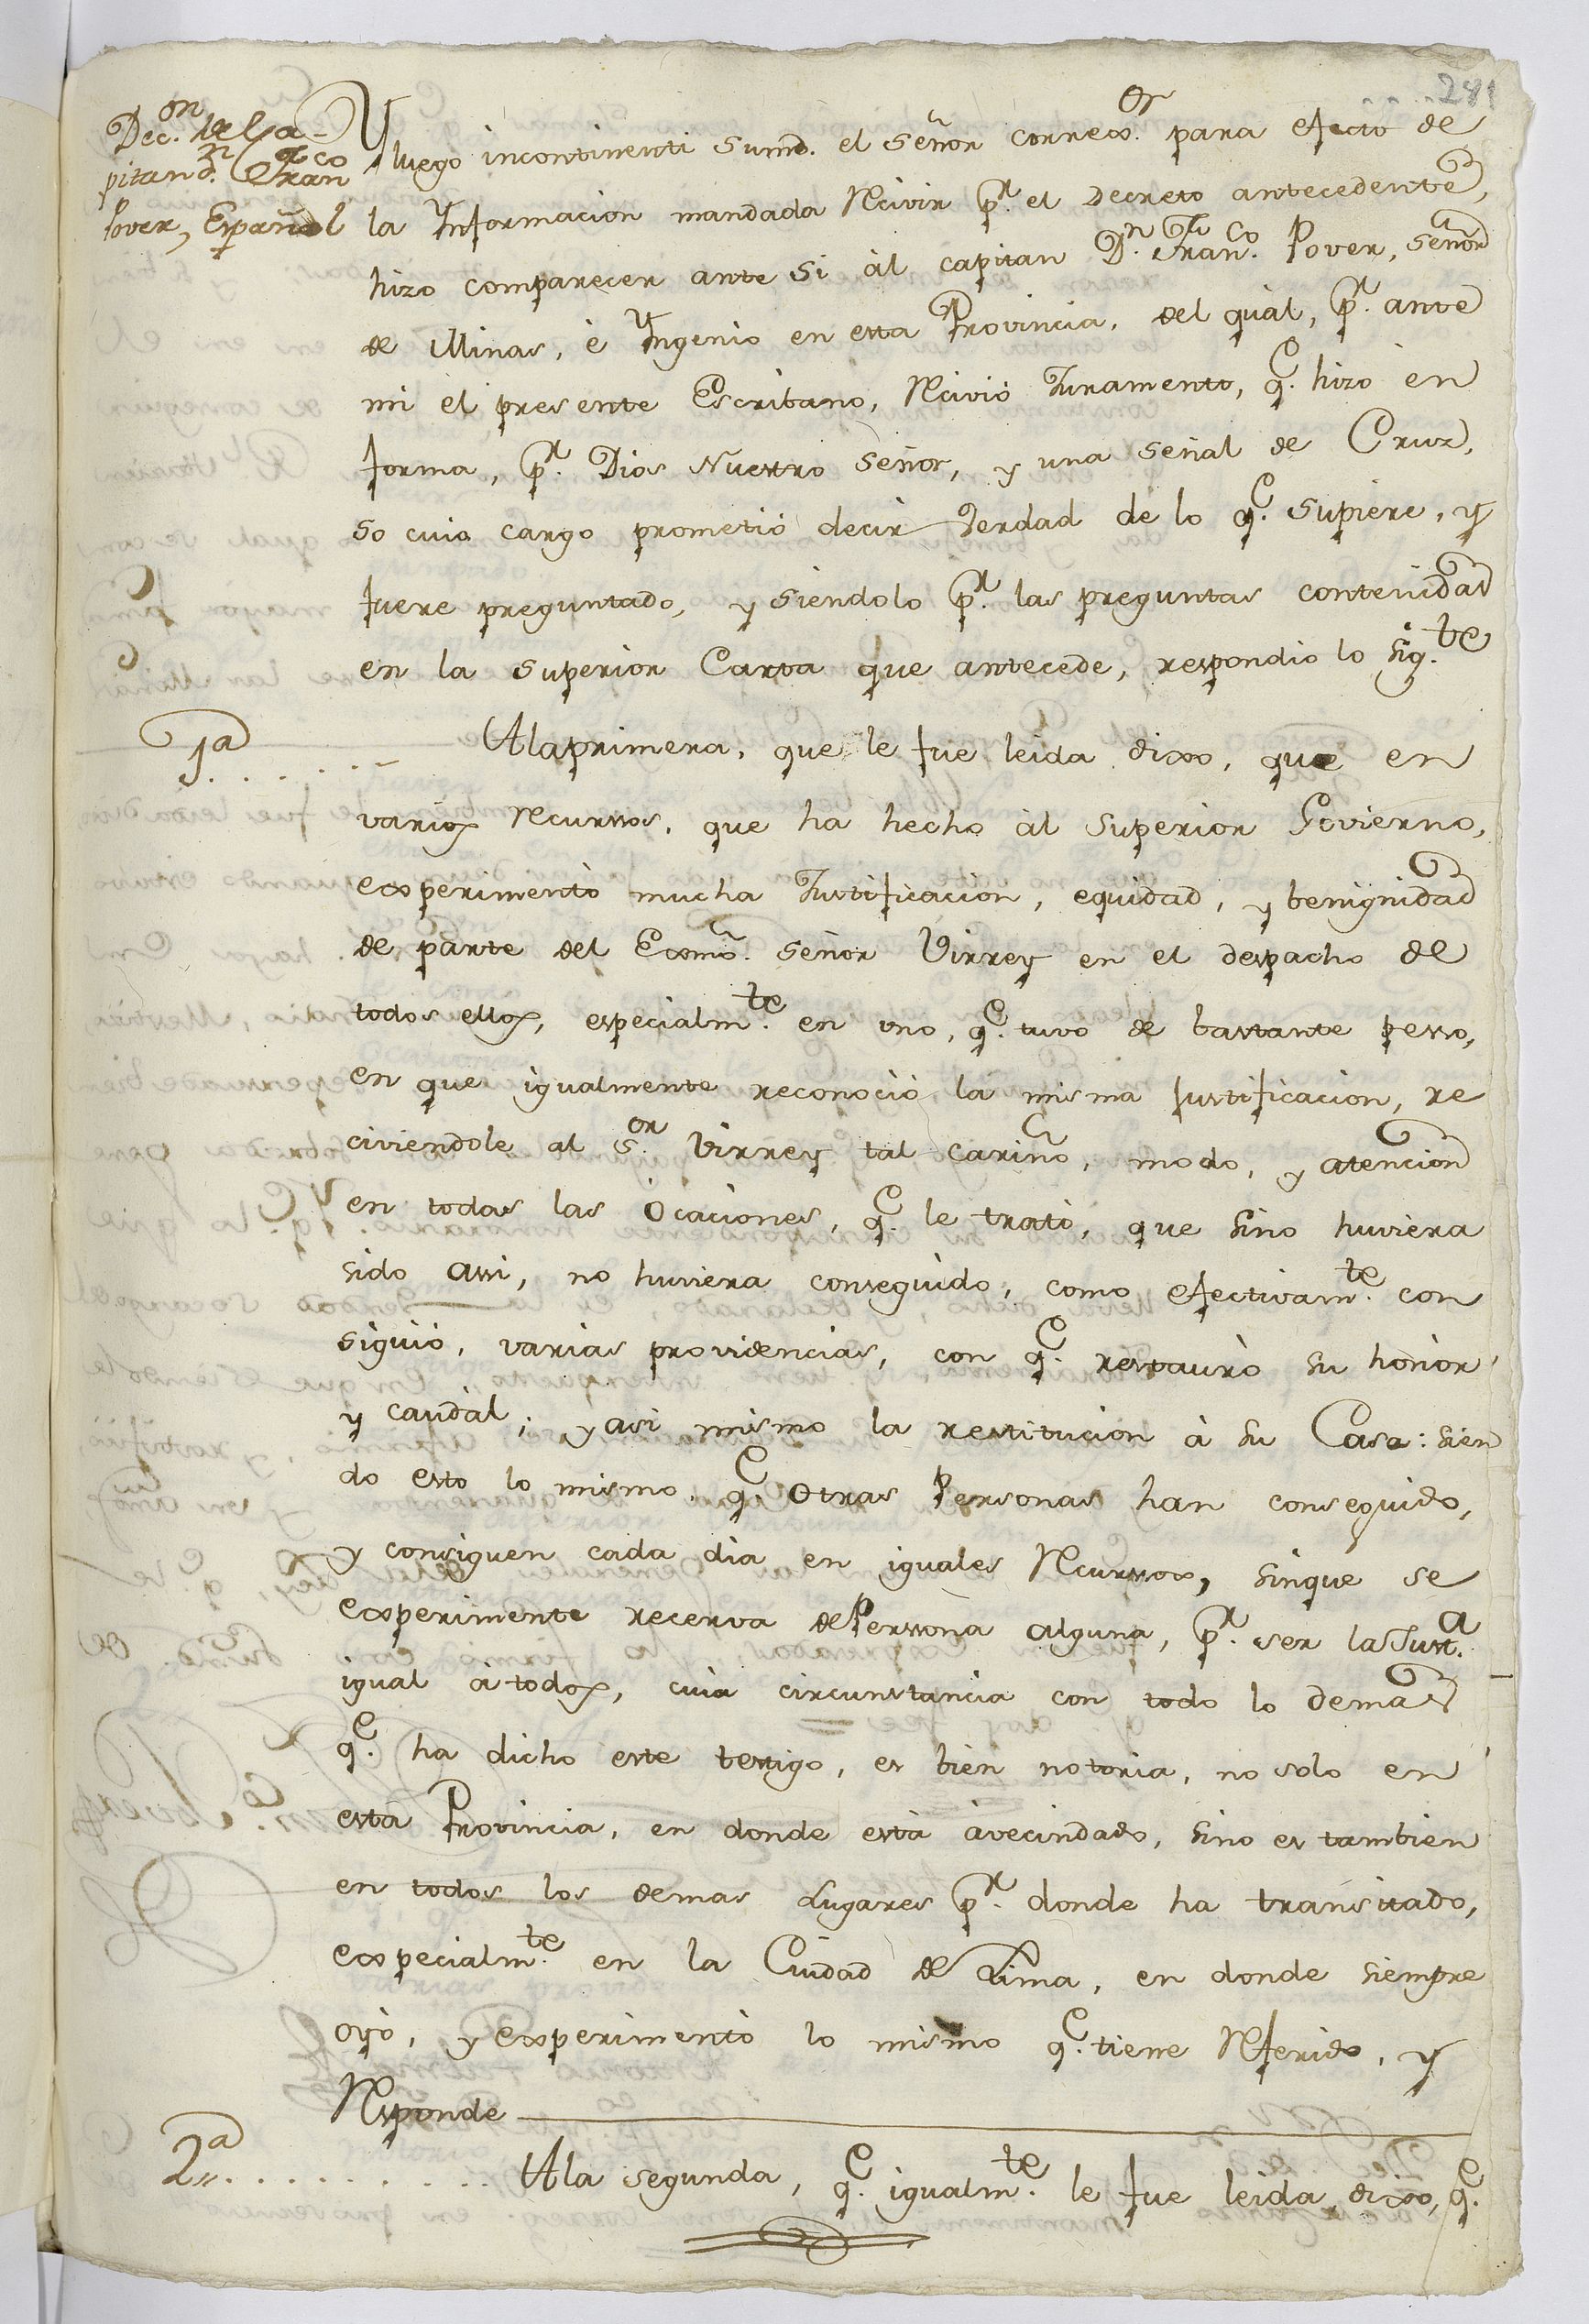 281
Dec.on de Ca-
pitan D.n Fran.co
Pover, Español
Y luego incontinenti sumd. el señor correg.or para efecto de
la Ynformacion mandada Recivir p.r el Decreto antecedente,
hizo comparecer ante si àl capitan D.n Fran.co Pover, señor
de Minas, è Yngenio en esta Provincia, del qual, p.r ante
mi el presente Escribano, Recivió Juramento, q.e hizo en
forma, p.r Dios Nuestro Señor, y una señal de Cruz,
so cuio cargo prometió decir Verdad de lo q.e supiere, y
fuere preguntado, y siendolo p.r las preguntas contenidas
en la superior Carta que antecede, respondio lo sig.te
1a. . . . . . Alaprimera, que le fue leida dixo, que en
varios Recursos, que ha hecho àl Superior Govierno,
experimentò mucha Justificacion, equidad, y benignidad
de parte del Exmō. señor Virrey en el despacho de
todos ellos, especialm.te en uno, q.e tuvo de bastante pesso,
en que igualmente reconoció la misma justificacion, re
civiendole al S.or Virrey tal cariño, modo, y atencion
en todas las Ocaciones, q.e le trató, que sino huviera
sido assi, no huviera conseguido, como efectivam.te con
siguió, varias providencias, con q.e restaurò su honor
y caudàl; y asi mismo la restitucion à su Casa: sien
do esto lo mismo, q.e Otras Personas han conseguido,
y consiguen cada dia en iguales Recursos, sinque se
experimente recerva dePerssona alguna, p.r ser laJust.a
igual à todos, cuia circunstancia con todo lo demas
q.e ha dicho este testigo, es bien notoria, no solo en
esta Provincia, en donde està àvecindado, sino es tambien
en todos los demas Lugares p.r donde ha transitado,
expecialm.te en la Ciudad de Lima, en donde siempre
oyò, y experimentò lo mismo q.e tiene Referido, y
Responde
2a. . . . . . . . . . Ala segunda, q.e igualm.te le fue leida, dixo, q.e